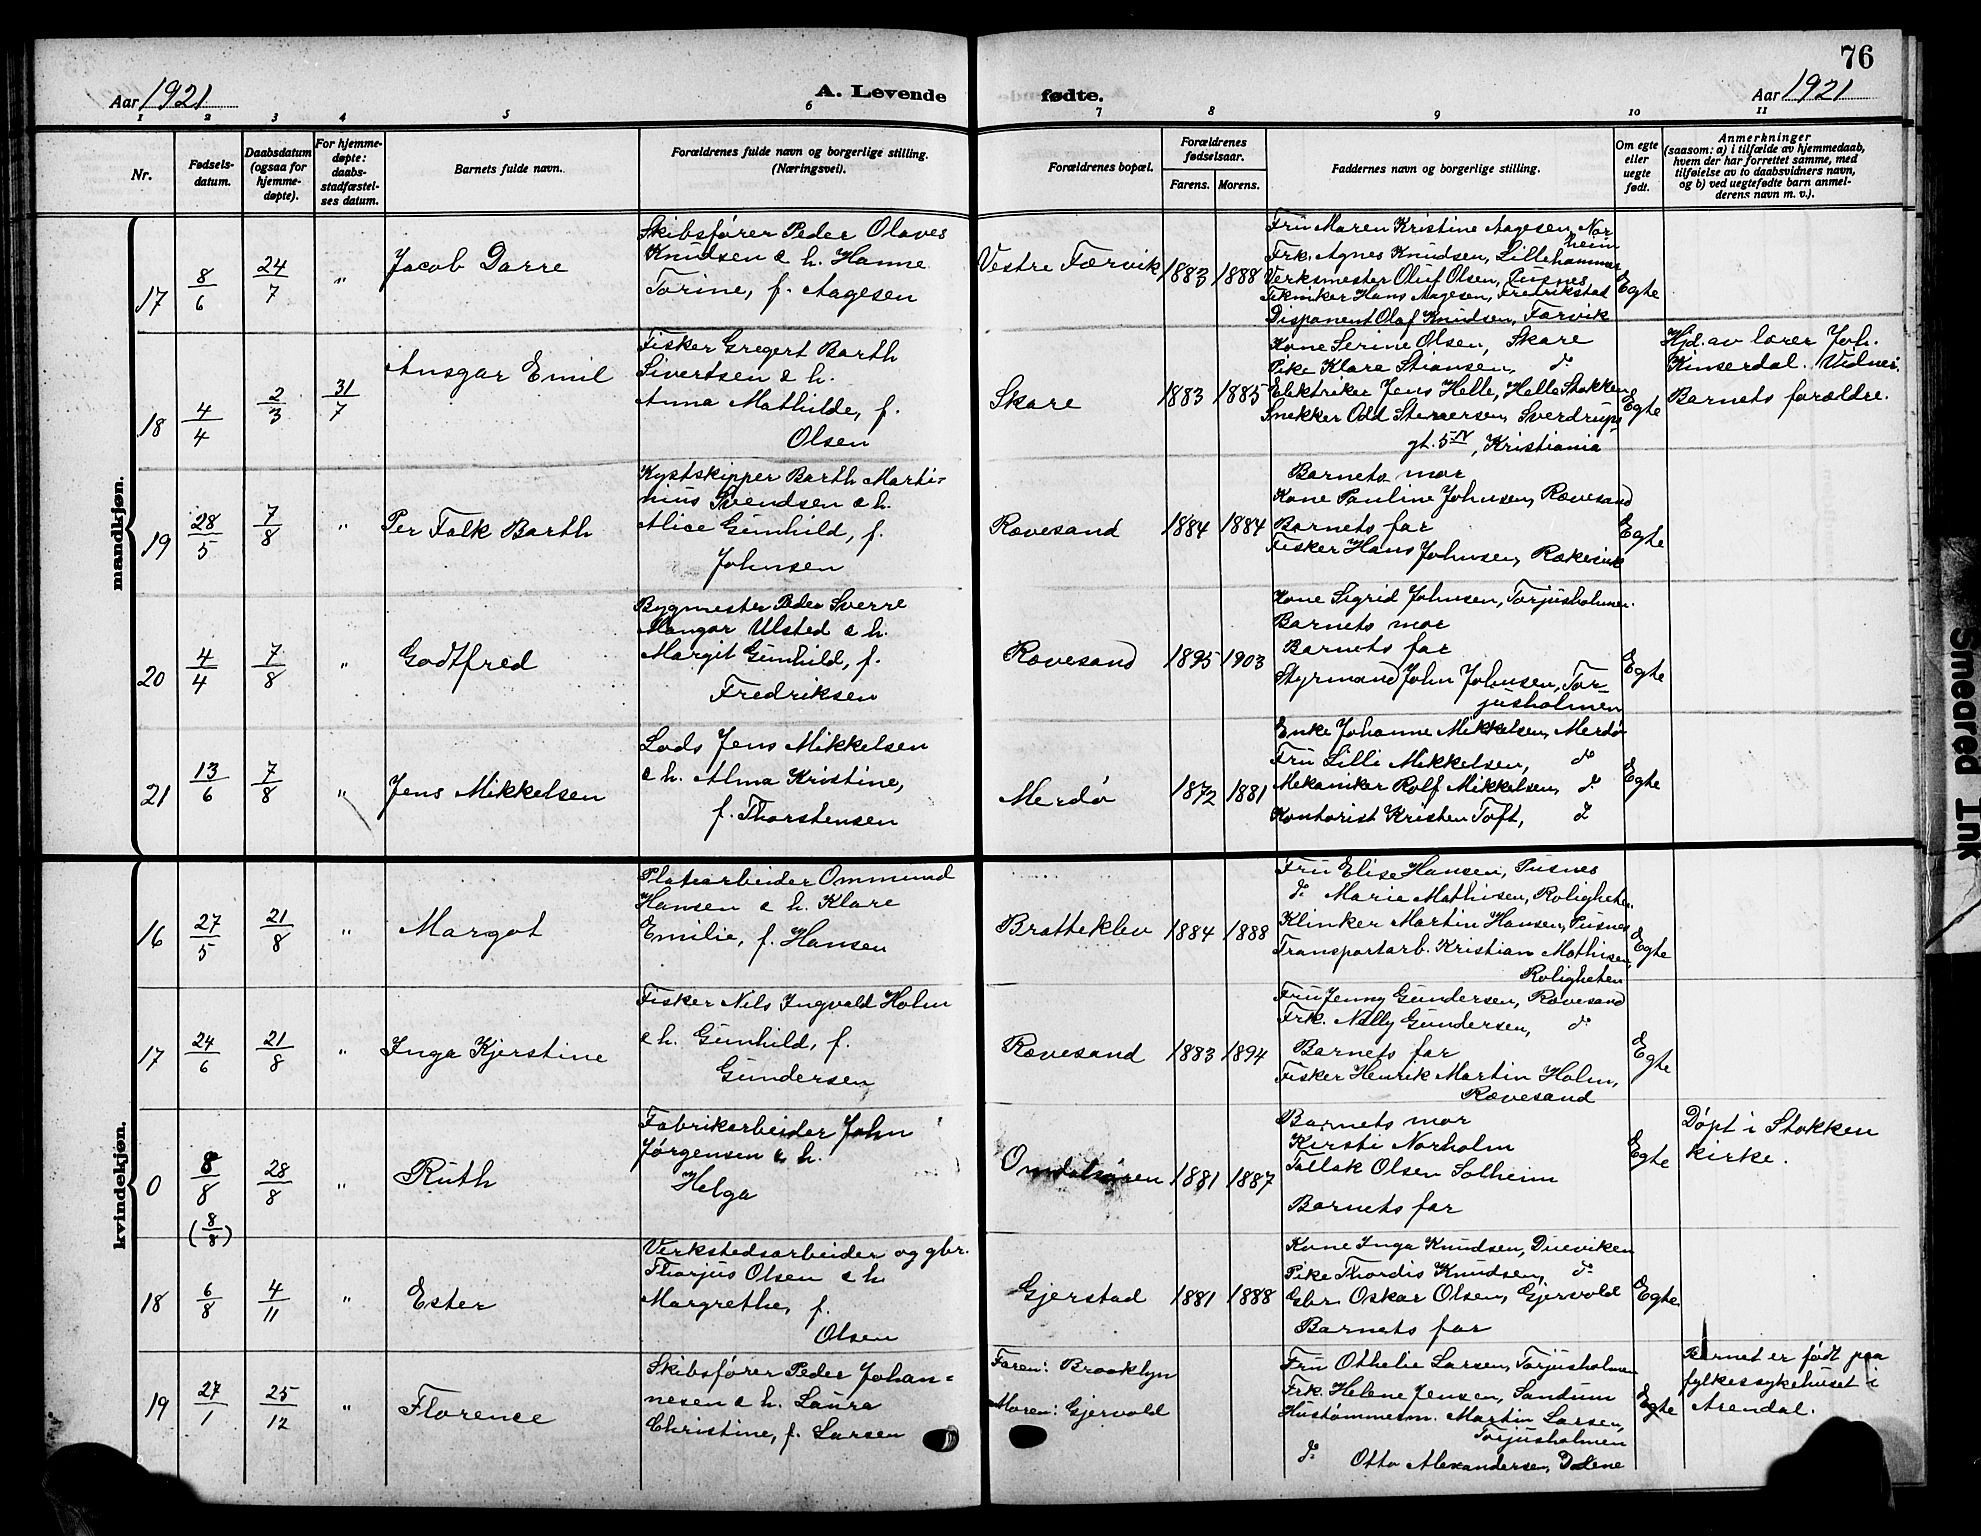 76
Aar 1921
A. Levende
fødte.
Aar 1921
1 2 3 4 5 6 7 8 9 10 11
Nr.
Fødsels-
datum.
Daabsdatum
(ogsaa for
hjemme-
døpte).
For hjemme-
døpte:
daabs-
stadfæstel-
ses datum.
Barnets fulde navn.
Forældrenes fulde navn og borgerlige stilling.
(Næringsvei).
Forældrenes bopæl.
Forældrenes
fødselsaar.
Farens. Morens.
Faddernes navn og borgerlige stilling.
Om egte
eller
uegte
født.
Anmerkninger
(saasom: a) i tilfælde av hjemmedaab,
hvem der har forrettet samme, med
tilføielse av to daabsvidners navn,
og b) ved uegtefødte barn anmel-
derens navn m. v.).
mandkjøn.
17
8/6
24/7
"
Jacob Darre
Skibsfører Peder Olaves
Knudsen & h. Hanne
Torine, f. Aagesen
Vestre Færvik
1883
1888
Fru Maren Kristine Aagesen, Nor
heim
Frk. Agnes Knudsen, Lillehammer
Verksmester Oluf Olsen, Pusnes
Tekniker Hans Aagesen, Fredrikstad
Disponent Olaf Knudsen, Færvik
Egte
18
4/4
2/3
31/7
Ansgar Emil
Fisker Gregert Barth
Sivertsen & h.
Anna Mathilde, f.
Olsen
Skare
1883
1885
Kone Serine Olsen, Skare
Pike Klara Stiansen, do
Elektriker Jens Helle, Helle Stokken
Snekker Odd Sverdrups
gt. 5 IV, Kristiania
Egte
Hjd. av lærer Joh.
Kinserdal. Vidner:
Barnets forældre.
19
28/5
7/8
"
Per Falk Barth
Kystskipper Barth Marti-
nius Svendsen & h.
Alice Gunhild, f.
Johnsen
Rævesand
1884
1884
Barnets mor
Kone Pauline Johnsen, Rævesand
Barnets far
Fisker Hans Johnsen, Rækevik
Egte
20
4/4
7/8
"
Godtfred
Bygmester Peder Sverre
Mangor Ulsted & h.
Margit Gunhild, f.
Fredriksen
Rævesand
1895
1903
Kone Sigrid Johnsen, Torjusholmen.
Barnets mor
Barnets far
Styrmand John Johnsen, Tor-
jusholmen
Egte
21
13/6
7/8
"
Jens Mikkelsen
Lods Jens Mikkelsen
& h. Alma Kristine,
f. Thorstensen
Merdø
1872
1881
Enke Johanne Mikkelsen, Merdø
Fru Lilli Mikkelsen, do
Mekaniker Rolf Mikkelsen, do
Kontorist Kristen Toft, do
Egte
kvindekjøn.
16
27/5
21/8
"
Margot
Platearbeider Ommund
Hansen & h. Klare
Emilie, f. Hansen
Bratteklev
1884
1888
Fru Elise Hansen, Pusnes
do Marie Mathisen, Roligheten
Klinker Martin Hansen, Pusnes
Transportarb. Kristian Mathisen,
Roligheten
Egte
17
24/6
21/8
"
Inga Kjerstine
Fisker Nils Ingvald Holm
& h. Gunhild, f.
Gundersen
Rævesand
1883
1894
Fru Jenny Gundersen, Rævesand
Frk. Nelly Gundersen, do
Barnets far
Fisker Henrik Martin Holm,
Rævesand
Egte
0
8/8
(8/8)
28/8
"
Ruth
Fabrikarbeider John
Jørgensen & h.
Helga
1881
1887
Barnets mor
Kirsti Norholm
Tellak Olsen Solheim
Barnets far
Egte
Døpt i Stokken
kirke.
18
6/8
4/11
"
Ester
Verkstedsarbeider og gbr.
Thorjus Olsen & h.
Margrethe, f.
Olsen
Gjerstad
1881
1888
Kone Inga Knudsen, Dueviken
Pike Thordis Knudsen, do
Gbr. Oskar Olsen, Gjervold
Barnets far
Egte
19
27/1
25/12
"
Florence
Skibsfører Peder Johan-
nesen & h. Laura
Christine, f. Larsen
Faren: Brooklyn
Moren: Gjervold
Fru Othelie Larsen, Torjusholmen
Frk. Helene Jensen, Sandum
Hustømmerm. Martin Larsen,
Torjusholmen
do Otto Alexandersen, Dalene
Egte
Barnet er født paa
fylkessykehuset i
Arendal.
Smeared Ink